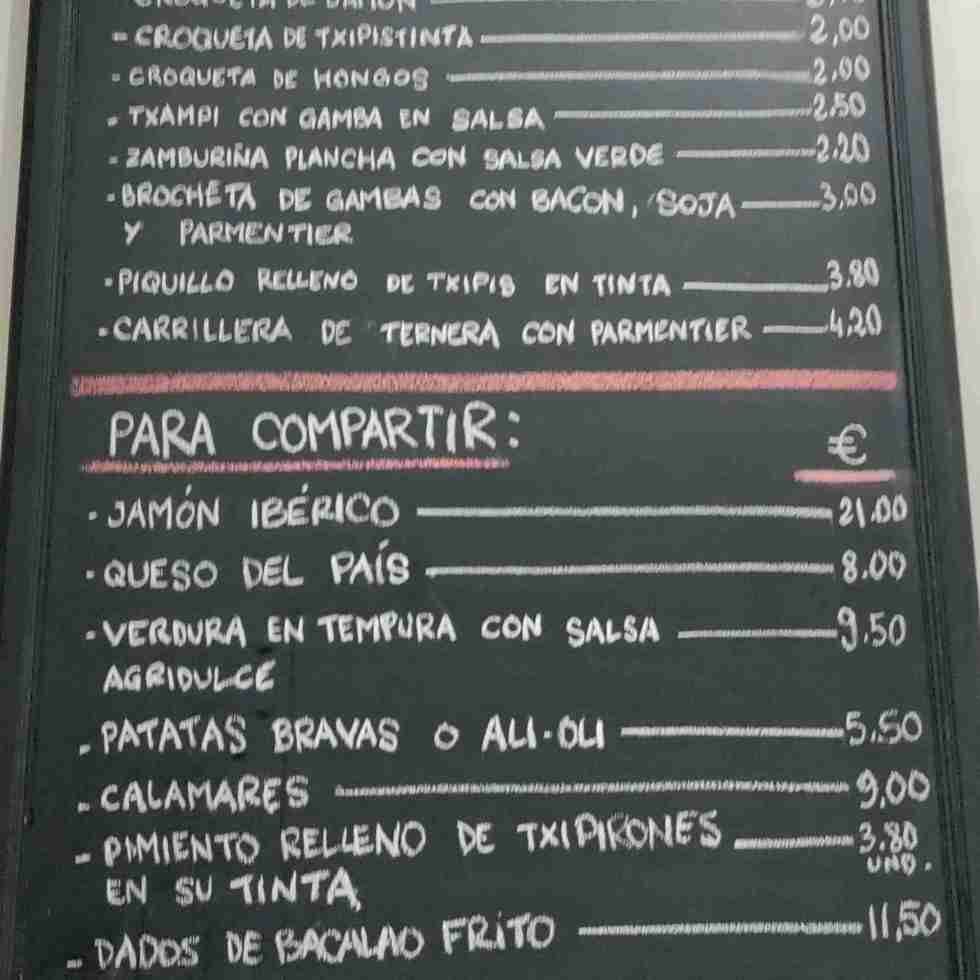 CROQUETA DE JAMÓN
- CROQUETA DE TXIPISTINTA 2,00
- CROQUETA DE HONGOS 2,00
- TXAMPI CON GAMBA EN SALSA 2.50
- ZAMBURIÑA PLANCHA CON SALSA VERDE 2.20
- BROCHETA DE GAMBAS CON BACON, SOJA 3,00
Y PARMENTIER
- PIQUILLO RELLENO DE TXIPIS EN TINTA 3.80
- CARRILLERA DE TERNERA CON PARMENTIER 4,20
PARA COMPARTIR: €
- JAMÓN IBÉRICO 21.00
- QUESO DEL PAÍS 8.00
- VERDURA EN TEMPURA CON SALSA 9.50
AGRIDULCE
- PATATAS BRAVAS O ALI-OLI 5.50
- CALAMARES 9,00
- PIMIENTO RELLENO DE TXIPIRONES 3.80
EN SU TINTA UND.
- DADOS DE BACALAO FRITO 11,50